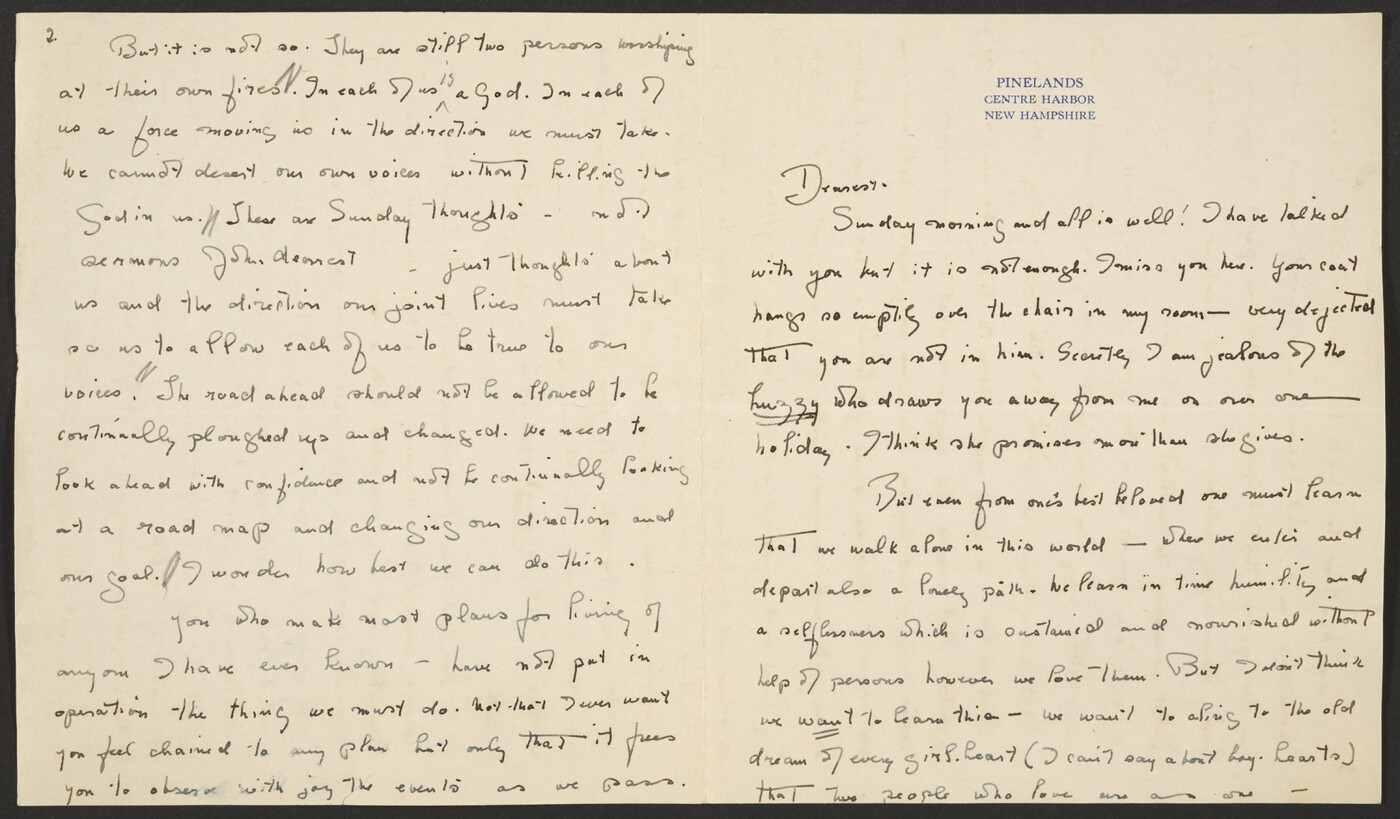 PINELANDS
CENTRE HARBOR
NEW HAMPSHIRE
Dearest.
Sunday morning and all is well! I have talked
with you but it is not enough. I miss you here. Your coat
hangs so emptily over the chair in my room — very dejected
that you are not in him. Secretly I am jealous of the
huzzy who draws you away from me on our one
holiday. I think she promises more than she gives.
But even from one's best beloved one must learn
that we walk alone in this world — where we enter and
depart also a lonely path. We learn in time humility and
a selflessness which is sustained and nourished without
help of persons however we love them. But I don't think
we want to learn this — we want to cling to the old
dream of every girl-heart (I can't say about boy-hearts)
that two people who love are as one —
2.
But it is not so. They are still two persons worshiping
at their own fires. // In each of us is a God. In each of
us a force moving us in the direction we must take.
We cannot desert our own voices without killing the
God in us. // These are Sunday thoughts - not
sermons John dearest - just thoughts about
us and the direction our joint lives must take
so as to allow each of us to be true to our
voices. // The road ahead should not be allowed to be
continually ploughed up and changed. We need to
look ahead with confidence and not be continually looking
at a road map and changing our direction and
our goal. // I wonder how best we can do this.
You who make most plans for living of
anyone I have ever known — have not put in
operation the thing we must do. Not that I ever want
you feel chained to any plan but only that it frees
you to observe with joy the events as we pass.